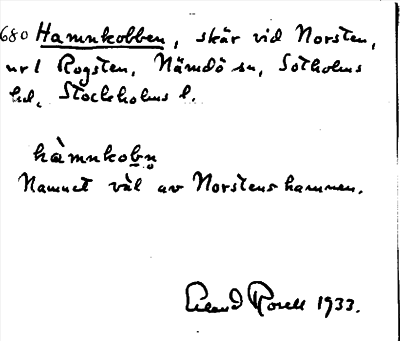 680 Hamnkobben, skär vid Norsten,
nr 1 Rogsten, Nämdö sn, Sotholms
hd, Stockholms l.
hàmnkobn̥
Namnet väl av Norstens hamnen.
Erland Rosell 1933.